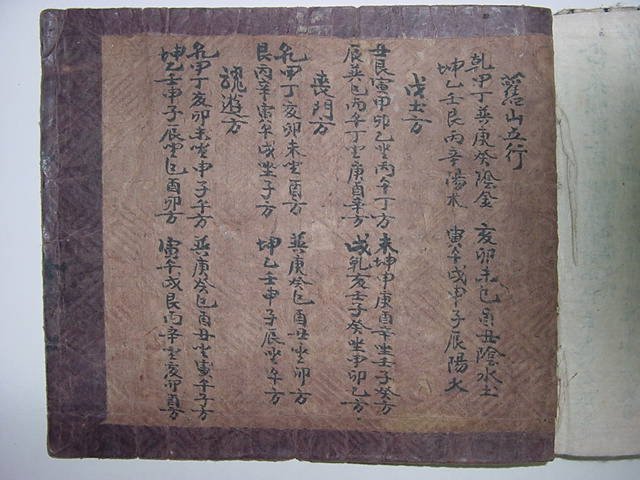 舊山五行
乾甲丁巽庚癸陰金 亥卯未巳酉丑陰水土
坤乙壬艮丙辛陽木 寅午戌申子辰陽火
戊土方
丑艮寅甲卯乙坐丙午丁方 未坤申庚酉辛坐壬子癸方
辰巽巳丙午丁坐庚酉辛方 戌乾亥壬子癸坐甲卯乙方
喪門方
乾甲丁亥卯未坐酉方 巽庚癸巳酉丑坐卯方
艮丙辛寅午戌坐子方 坤乙壬申子辰坐午方
遊方
乾甲丁亥卯未坐申子午方 巽庚癸巳酉丑坐寅午子方
坤乙壬申子辰坐巳酉卯方 寅午戌艮丙辛坐亥卯酉方